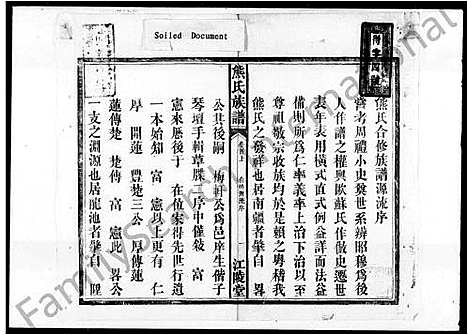 Soiled Document
熊氏合修族譜源流序
昔者周禮小史奠世系辨昭穆爲後
人作譜之權輿歐蘇氏作倣史遷世
表年表用橫式直式例益詳而法益
備則所爲仁率義率上治下治以至
尊祖敬宗收族均於是賴之粵稽我
熊氏之發祥也居南疆者肇自 畧
熊氏族譜
卷首上
江陵堂
公其後嗣 梅軒公爲邑庠生偕子
琴壇手輯草牒一序中僅叙 富
憲來歷後于 在位家得先世行遺
一本始知 富 憲以上更有 仁
厚 開蓮 豐楚三公 厚傳蓮
蓮傳楚 楚傳 富 憲此 畧公
一支之淵源也居龍池者肇自 陞
FamilySearch International